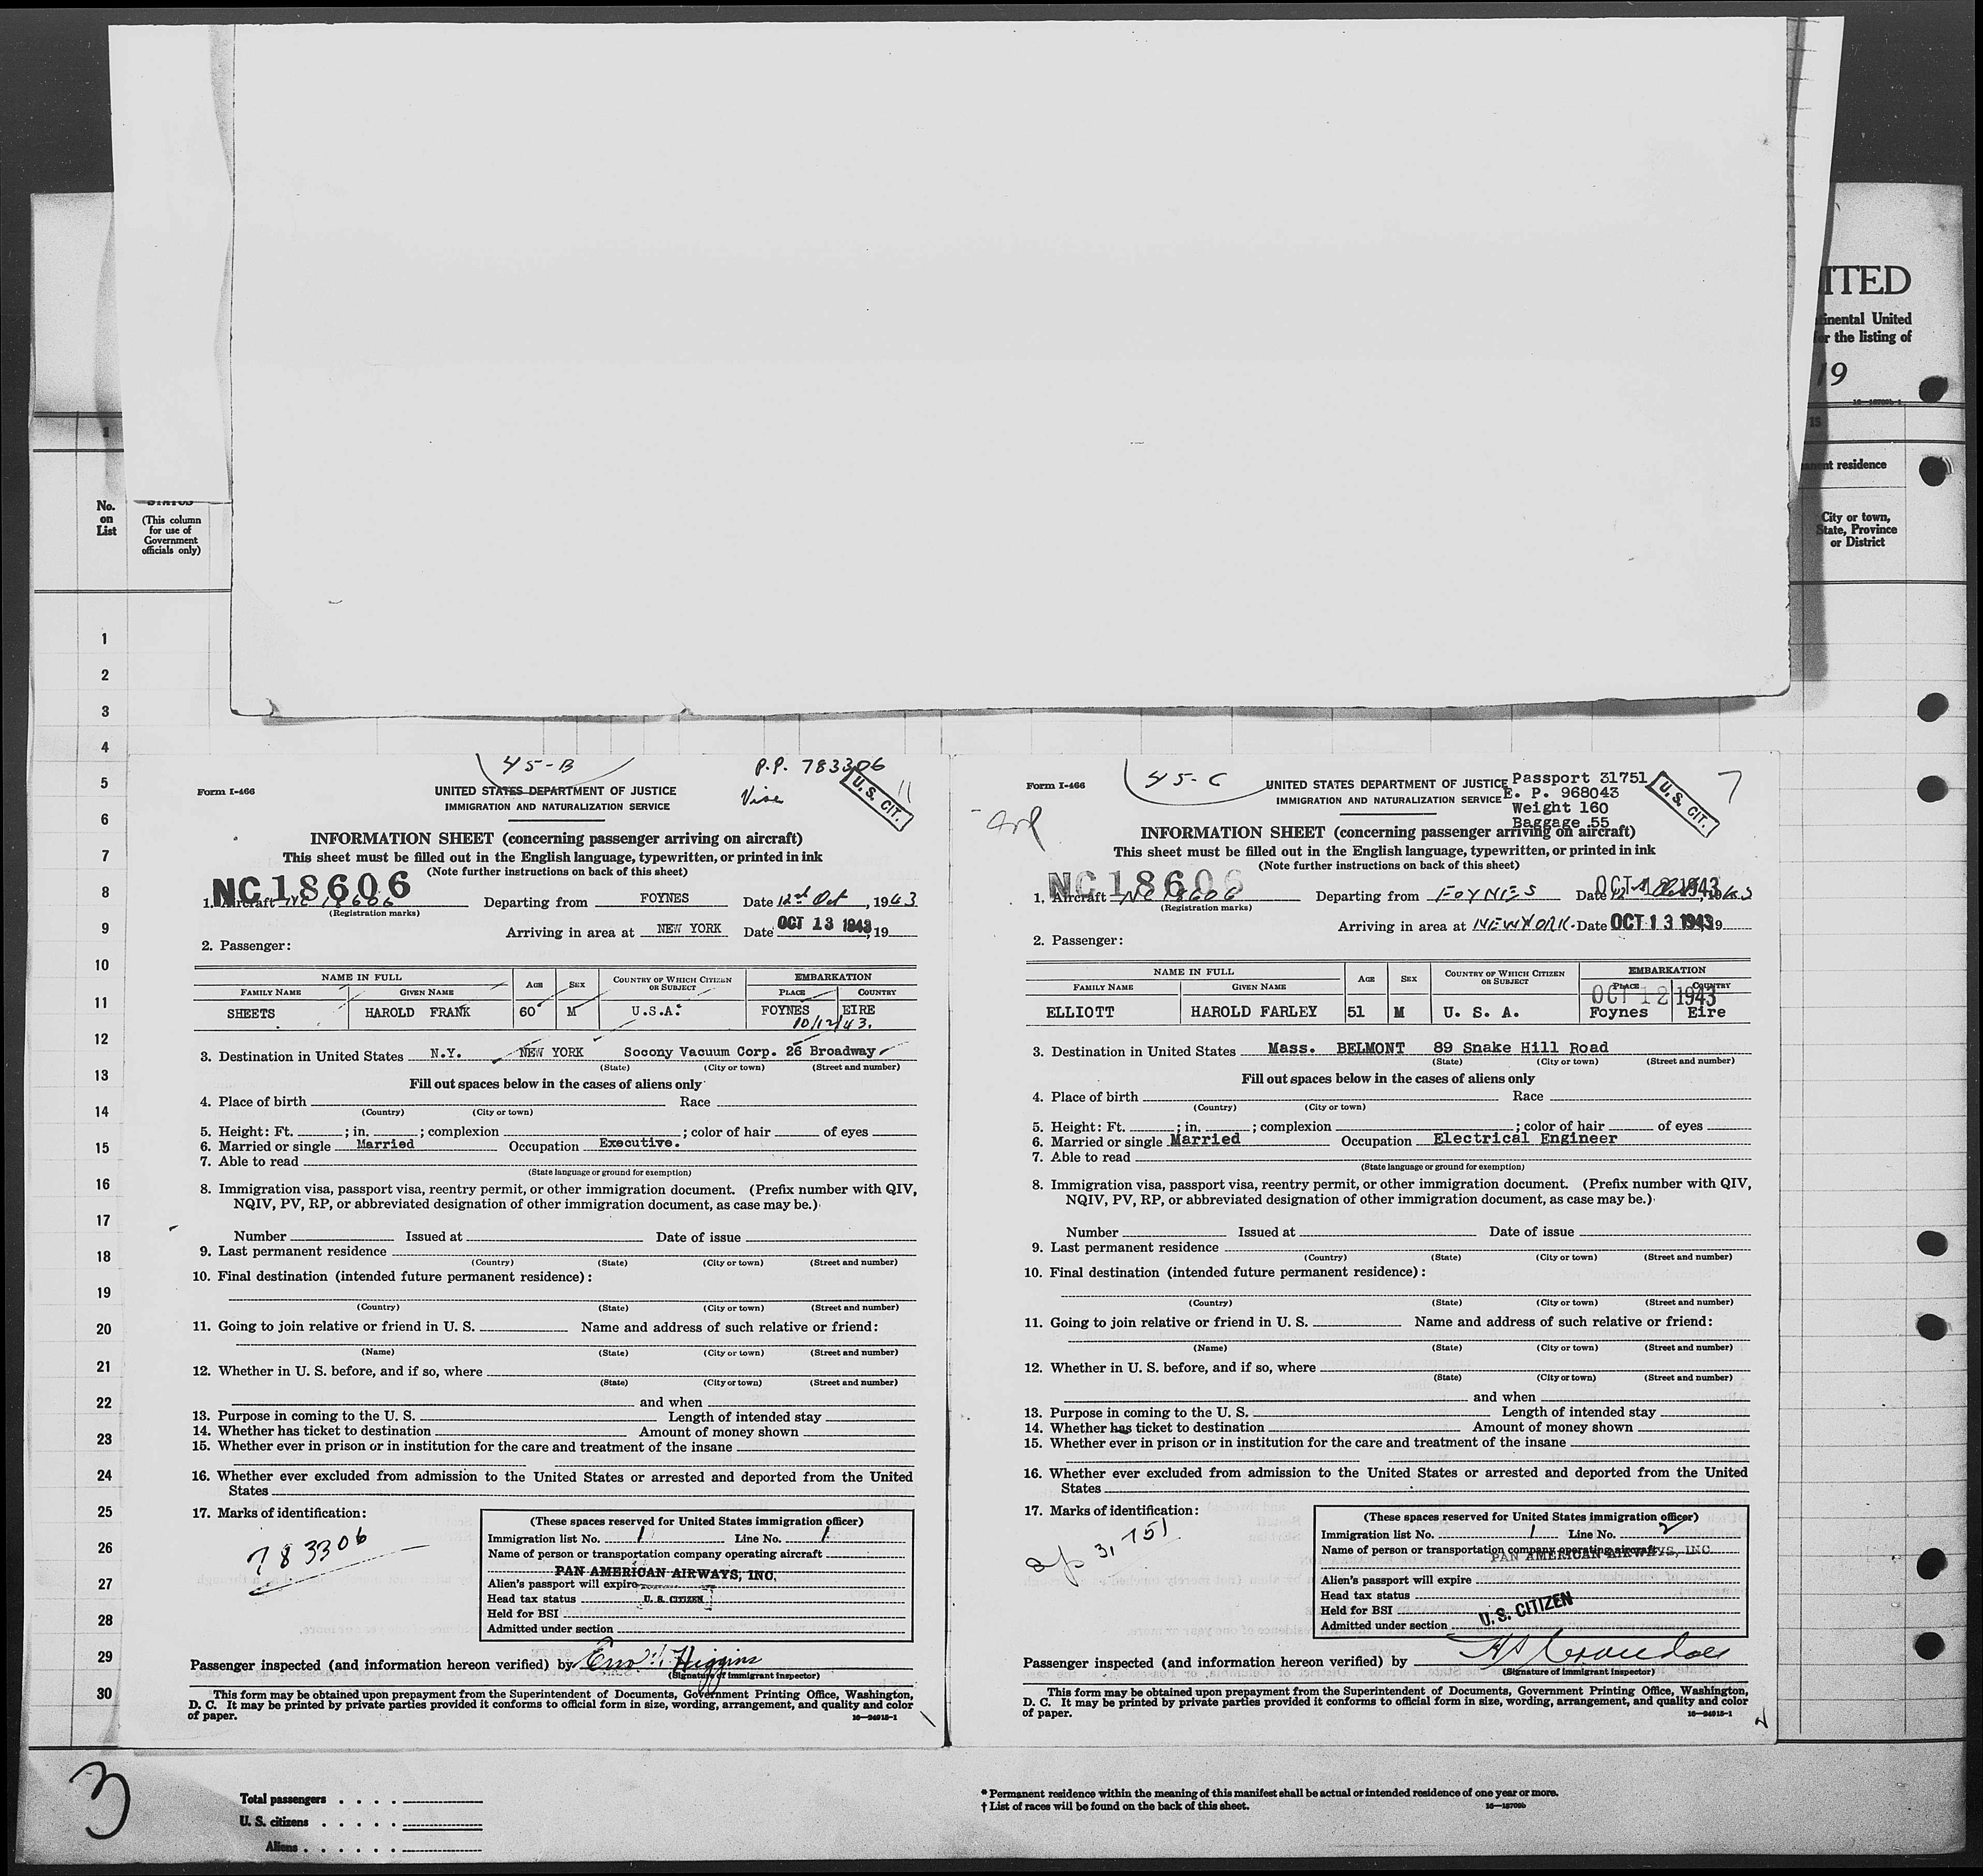 ITED
inental United
r the listing of
19
nent residence
City or town,
State, Province
or District
No.
on
List
(This column
for use of
Government
officials only)
1
2
3
4
5
6
7
8
9
10
11
12
13
14
15
16
17
18
19
20
21
22
23
24
25
26
27
28
29
30
45-B
P.P. 783306
Form I-466
UNITED STATES DEPARTMENT OF JUSTICE
U. S. CIT.
IMMIGRATION AND NATURALIZATION SERVICE
INFORMATION SHEET (concerning passenger arriving on aircraft)
This sheet must be filled out in the English language, typewritten, or printed in ink
(Note further instructions on back of this sheet)
NC 18606
1. Aircraft NC 18606 Departing from FOYNES Date 12nd Oct, 1943
(Registration marks)
Arriving in area at NEW YORK Date OCT 13 1943, 19
2. Passenger:
NAME IN FULL AGE SEX COUNTRY OF WHICH CITIZEN OR SUBJECT EMBARKATION
FAMILY NAME GIVEN NAME PLACE COUNTRY
SHEETS HAROLD FRANK 60 M U.S.A. FOYNES EIRE
10/12/43.
3. Destination in United States N.Y. NEW YORK Socony Vacuum Corp. 26 Broadway
(State) (City or town) (Street and number)
Fill out spaces below in the cases of aliens only
4. Place of birth Race
(Country) (City or town)
5. Height: Ft. ; in. ; complexion ; color of hair of eyes
6. Married or single Married Occupation Executive.
7. Able to read
(State language or ground for exemption)
8. Immigration visa, passport visa, reentry permit, or other immigration document. (Prefix number with QIV,
NQIV, PV, RP, or abbreviated designation of other immigration document, as case may be.)
Number Issued at Date of issue
9. Last permanent residence
(Country) (State) (City or town) (Street and number)
10. Final destination (intended future permanent residence):
(Country) (State) (City or town) (Street and number)
11. Going to join relative or friend in U. S. Name and address of such relative or friend:
(Name) (State) (City or town) (Street and number)
12. Whether in U. S. before, and if so, where
(State) (City or town) (Street and number)
and when
13. Purpose in coming to the U. S. Length of intended stay
14. Whether has ticket to destination Amount of money shown
15. Whether ever in prison or in institution for the care and treatment of the insane
16. Whether ever excluded from admission to the United States or arrested and deported from the United
States
17. Marks of identification:
783306
(These spaces reserved for United States immigration officer)
Immigration list No. 1 Line No. 1
Name of person or transportation company operating aircraft
PAN AMERICAN AIRWAYS, INC.
Alien's passport will expire
Head tax status U. S. CITIZEN
Held for BSI
Admitted under section
Passenger inspected (and information hereon verified) by Higgins
(Signature of immigrant inspector)
This form may be obtained upon prepayment from the Superintendent of Documents, Government Printing Office, Washington,
D. C. It may be printed by private parties provided it conforms to official form in size, wording, arrangement, and quality and color
of paper.
16—24915-1
45-C
7
Form I-466
UNITED STATES DEPARTMENT OF JUSTICE
IMMIGRATION AND NATURALIZATION SERVICE
Passport 31751
E. P. 968043
Weight 160
Baggage 55
U. S. CIT.
INFORMATION SHEET (concerning passenger arriving on aircraft)
This sheet must be filled out in the English language, typewritten, or printed in ink
(Note further instructions on back of this sheet)
NC 18606
1. Aircraft NC 18606 Departing from FOYNES Date OCT 12 1943
(Registration marks)
Arriving in area at NEW YORK. Date OCT 13 1943 19
2. Passenger:
NAME IN FULL AGE SEX COUNTRY OF WHICH CITIZEN OR SUBJECT EMBARKATION
FAMILY NAME GIVEN NAME PLACE COUNTRY
OCT 12 1943
ELLIOTT HAROLD FARLEY 51 M U. S. A. Foynes Eire
3. Destination in United States Mass. BELMONT 89 Snake Hill Road
(State) (City or town) (Street and number)
Fill out spaces below in the cases of aliens only
4. Place of birth Race
(Country) (City or town)
5. Height: Ft. ; in. ; complexion ; color of hair of eyes
6. Married or single Married Occupation Electrical Engineer
7. Able to read
(State language or ground for exemption)
8. Immigration visa, passport visa, reentry permit, or other immigration document. (Prefix number with QIV,
NQIV, PV, RP, or abbreviated designation of other immigration document, as case may be.)
Number Issued at Date of issue
9. Last permanent residence
(Country) (State) (City or town) (Street and number)
10. Final destination (intended future permanent residence):
(Country) (State) (City or town) (Street and number)
11. Going to join relative or friend in U. S. Name and address of such relative or friend:
(Name) (State) (City or town) (Street and number)
12. Whether in U. S. before, and if so, where
(State) (City or town) (Street and number)
and when
13. Purpose in coming to the U. S. Length of intended stay
14. Whether has ticket to destination Amount of money shown
15. Whether ever in prison or in institution for the care and treatment of the insane
16. Whether ever excluded from admission to the United States or arrested and deported from the United
States
17. Marks of identification:
31751
(These spaces reserved for United States immigration officer)
Immigration list No. 1 Line No. 2
Name of person or transportation company operating aircraft
PAN AMERICAN AIRWAYS, INC.
Alien's passport will expire
Head tax status
Held for BSI
U. S. CITIZEN
Admitted under section
Passenger inspected (and information hereon verified) by
(Signature of immigrant inspector)
This form may be obtained upon prepayment from the Superintendent of Documents, Government Printing Office, Washington,
D. C. It may be printed by private parties provided it conforms to official form in size, wording, arrangement, and quality and color
of paper.
16—24915-1
3
Total passengers
U. S. citizens
Aliens
* Permanent residence within the meaning of this manifest shall be actual or intended residence of one year or more.
† List of races will be found on the back of this sheet.